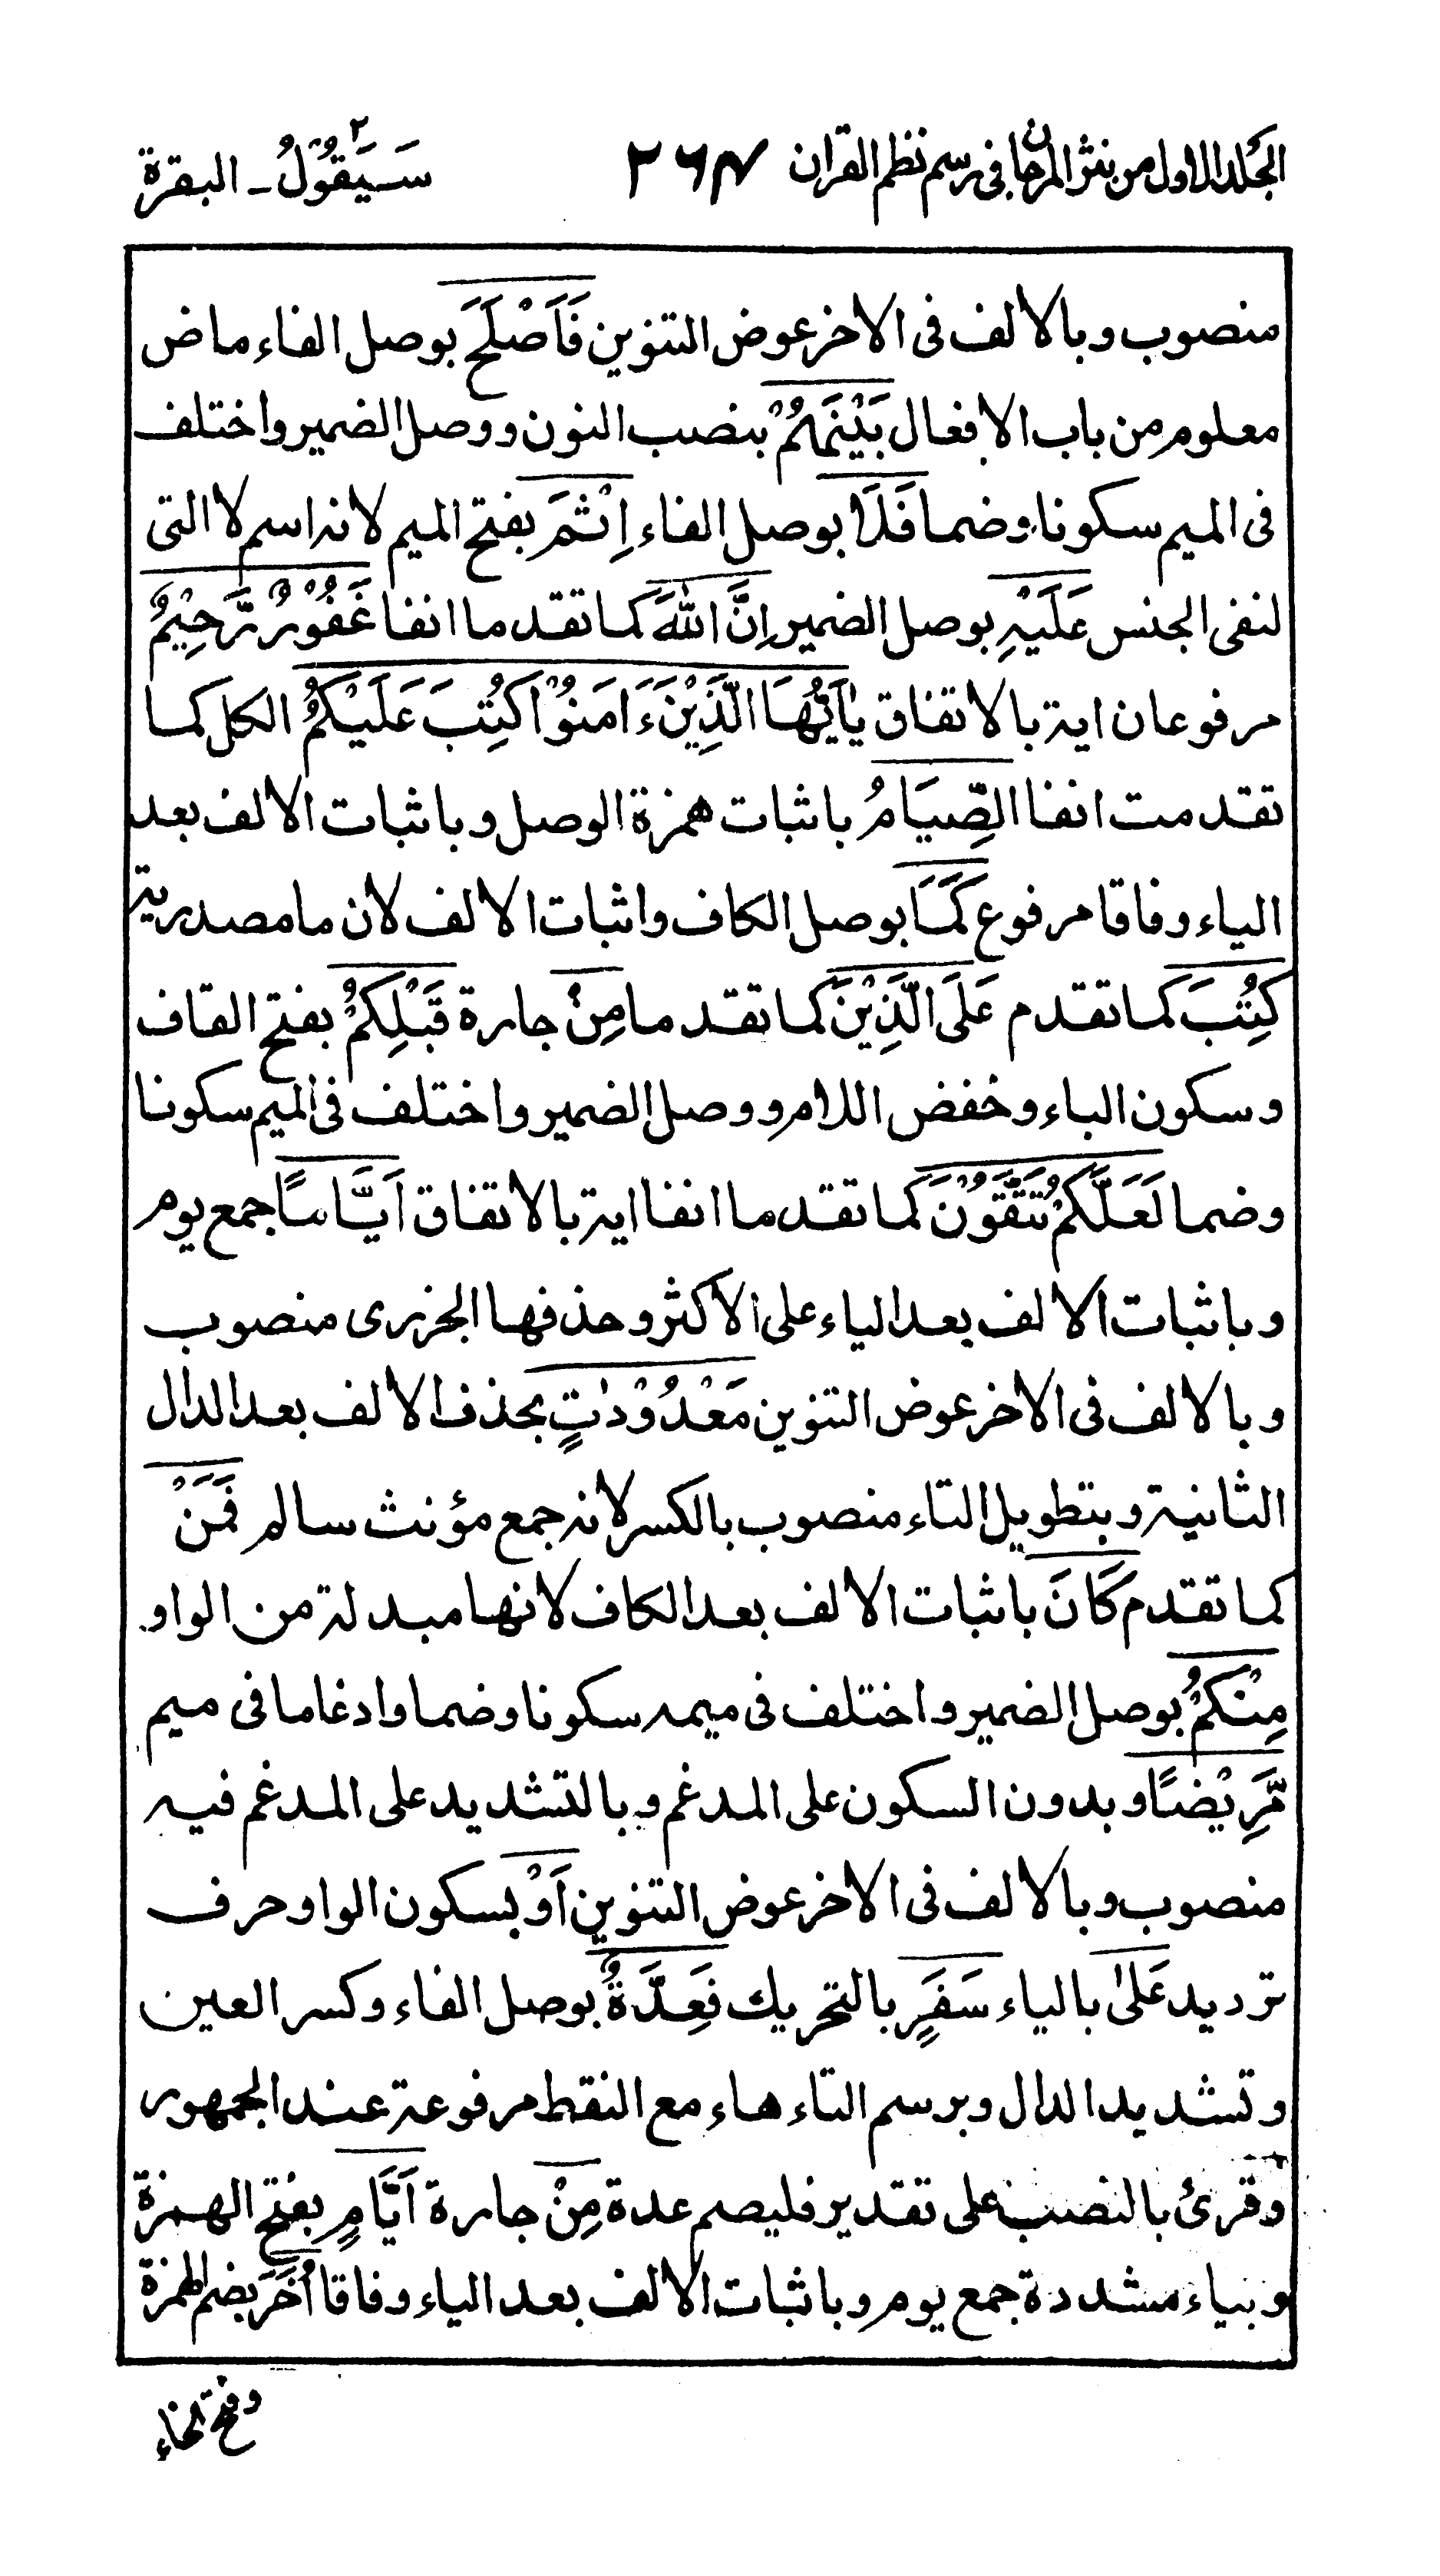 الجلد الاول من نثر المرجان فی رسم نظم القران ۲۶۴ سَيَقُوْلُ ۲ ـ البقرة
منصوب وبالالف فی الاخر عوض التنوين فَاَصْلَحَ بوصل الفاء ماض
معلوم من باب الافعال بَيْنَهُمْ بنصب النون ووصل الضمير واختلف
فی الميم سكونا وضما فَلَا بوصل الفاء اِثْمَ بفتح الميم لانه اسم لا التی
لنفی الجنس عَلَيْهِ بوصل الضمير اِنَّ اللّٰهَ كما تقدما انفا غَفُوْرٌ رَّحِيْمٌ
مرفوعان اية بالاتفاق يٰاَيُّهَا الَّذِيْنَ ءَامَنُوْا كُتِبَ عَلَيْكُمُ الكل كما
تقدمت انفا الصِّيَامُ باثبات همزة الوصل وباثبات الالف بعد
الياء وفاقا مرفوع كَمَا بوصل الكاف واثبات الالف لان ما مصدرية
كُتِبَ كما تقدم عَلَى الَّذِيْنَ كما تقدما مِنْ جارة قَبْلِكُمْ بفتح القاف
وسكون الباء وخفض اللام ووصل الضمير واختلف فی الميم سكونا
وضما لَعَلَّكُمْ تَتَّقُوْنَ كما تقدما انفا اية بالاتفاق اَيَّامًا جمع يوم
وباثبات الالف بعد الياء علی الاكثر وحذفها الجزری منصوب
وبالالف فی الاخر عوض التنوين مَعْدُوْدٰتٍ بحذف الالف بعد الدال
الثانية وبتطويل التاء منصوب بالكسر لانه جمع مؤنث سالم فَمَنْ
كما تقدم كَانَ باثبات الالف بعد الكاف لانها مبدلة من الواو
مِنْكُمْ بوصل الضمير واختلف فی ميمه سكونا وضما وادغاما فی ميم
مَّرِيْضًا وبدون السكون علی المدغم وبالتشديد علی المدغم فيه
منصوب وبالالف فی الاخر عوض التنوين اَوْ بسكون الواو حرف
ترديد عَلٰى بالياء سَفَرٍ بالتحريك فَعِدَّةٌ بوصل الفاء وكسر العين
وتشديد الدال وبرسم التاء هاء مع النقط مرفوعة عند الجمهور
وقرئ بالنصب علی تقدير فليصم عدة مِنْ جارة اَيَّامٍ بفتح الهمزة
وبياء مشددة جمع يوم وباثبات الالف بعد الياء وفاقا اُخَرَ بضم الهمزة
وفتح الخاء